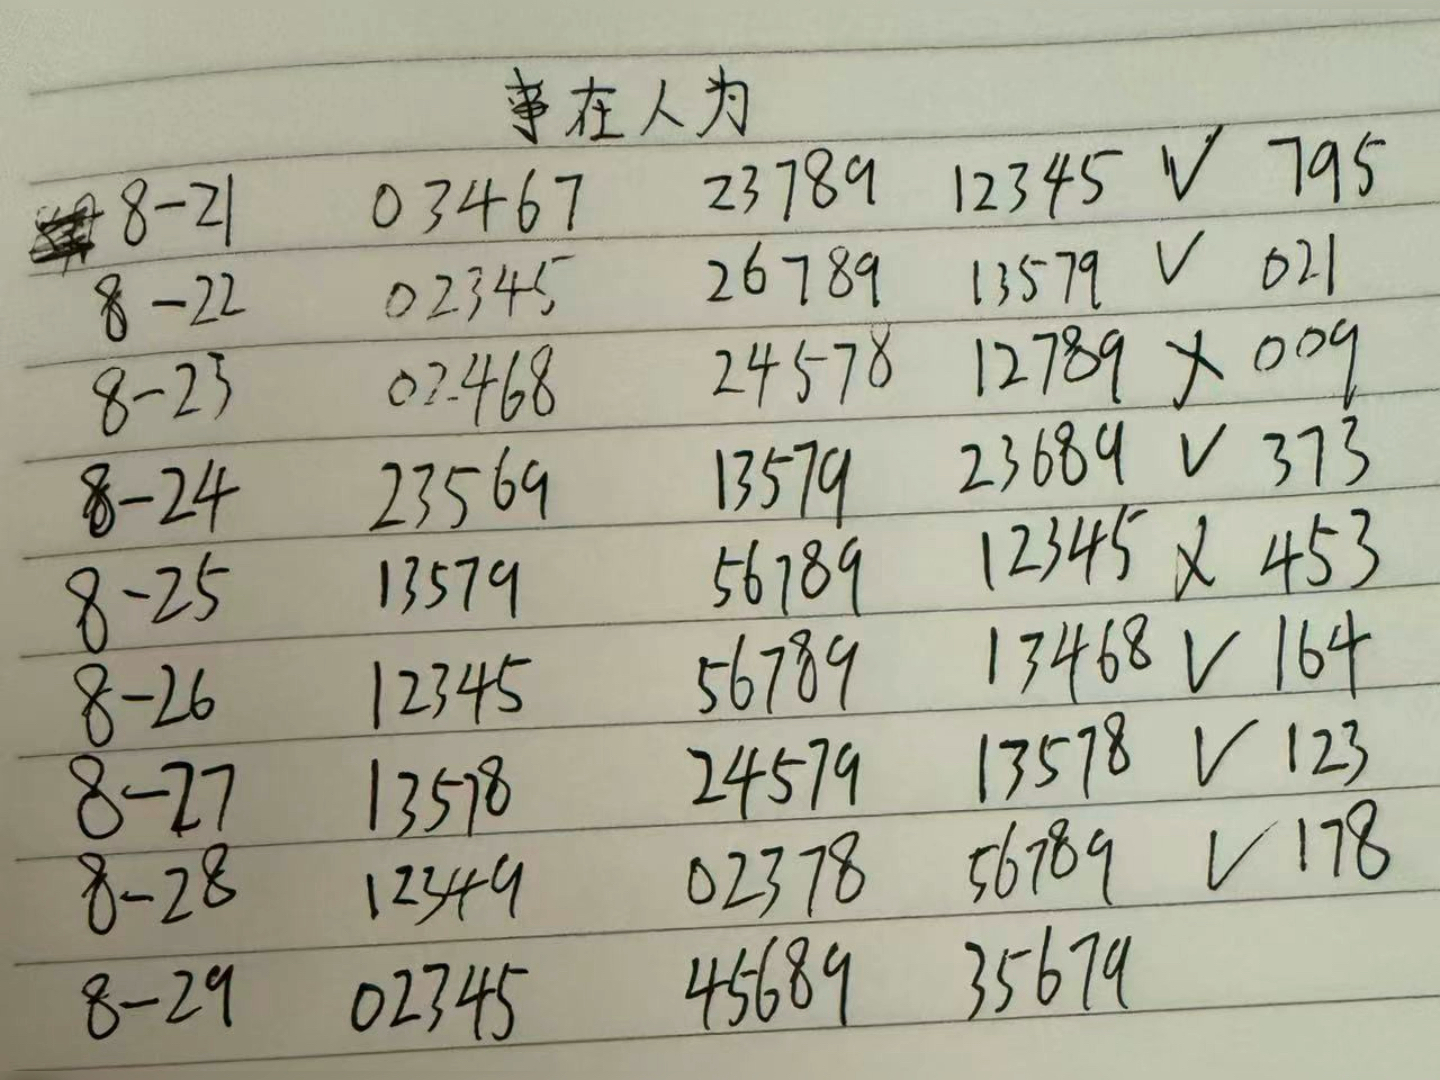 事在人为
8-21 03467 23789 12345 √ 795
8-22 02345 26789 13579 √ 021
8-23 02468 24578 12789 × 009
8-24 23569 13579 23689 √ 373
8-25 13579 56789 12345 × 453
8-26 12345 56789 13468 √ 164
8-27 13578 24579 13578 √ 123
8-28 12349 02378 56789 √ 178
8-29 02345 45689 35679